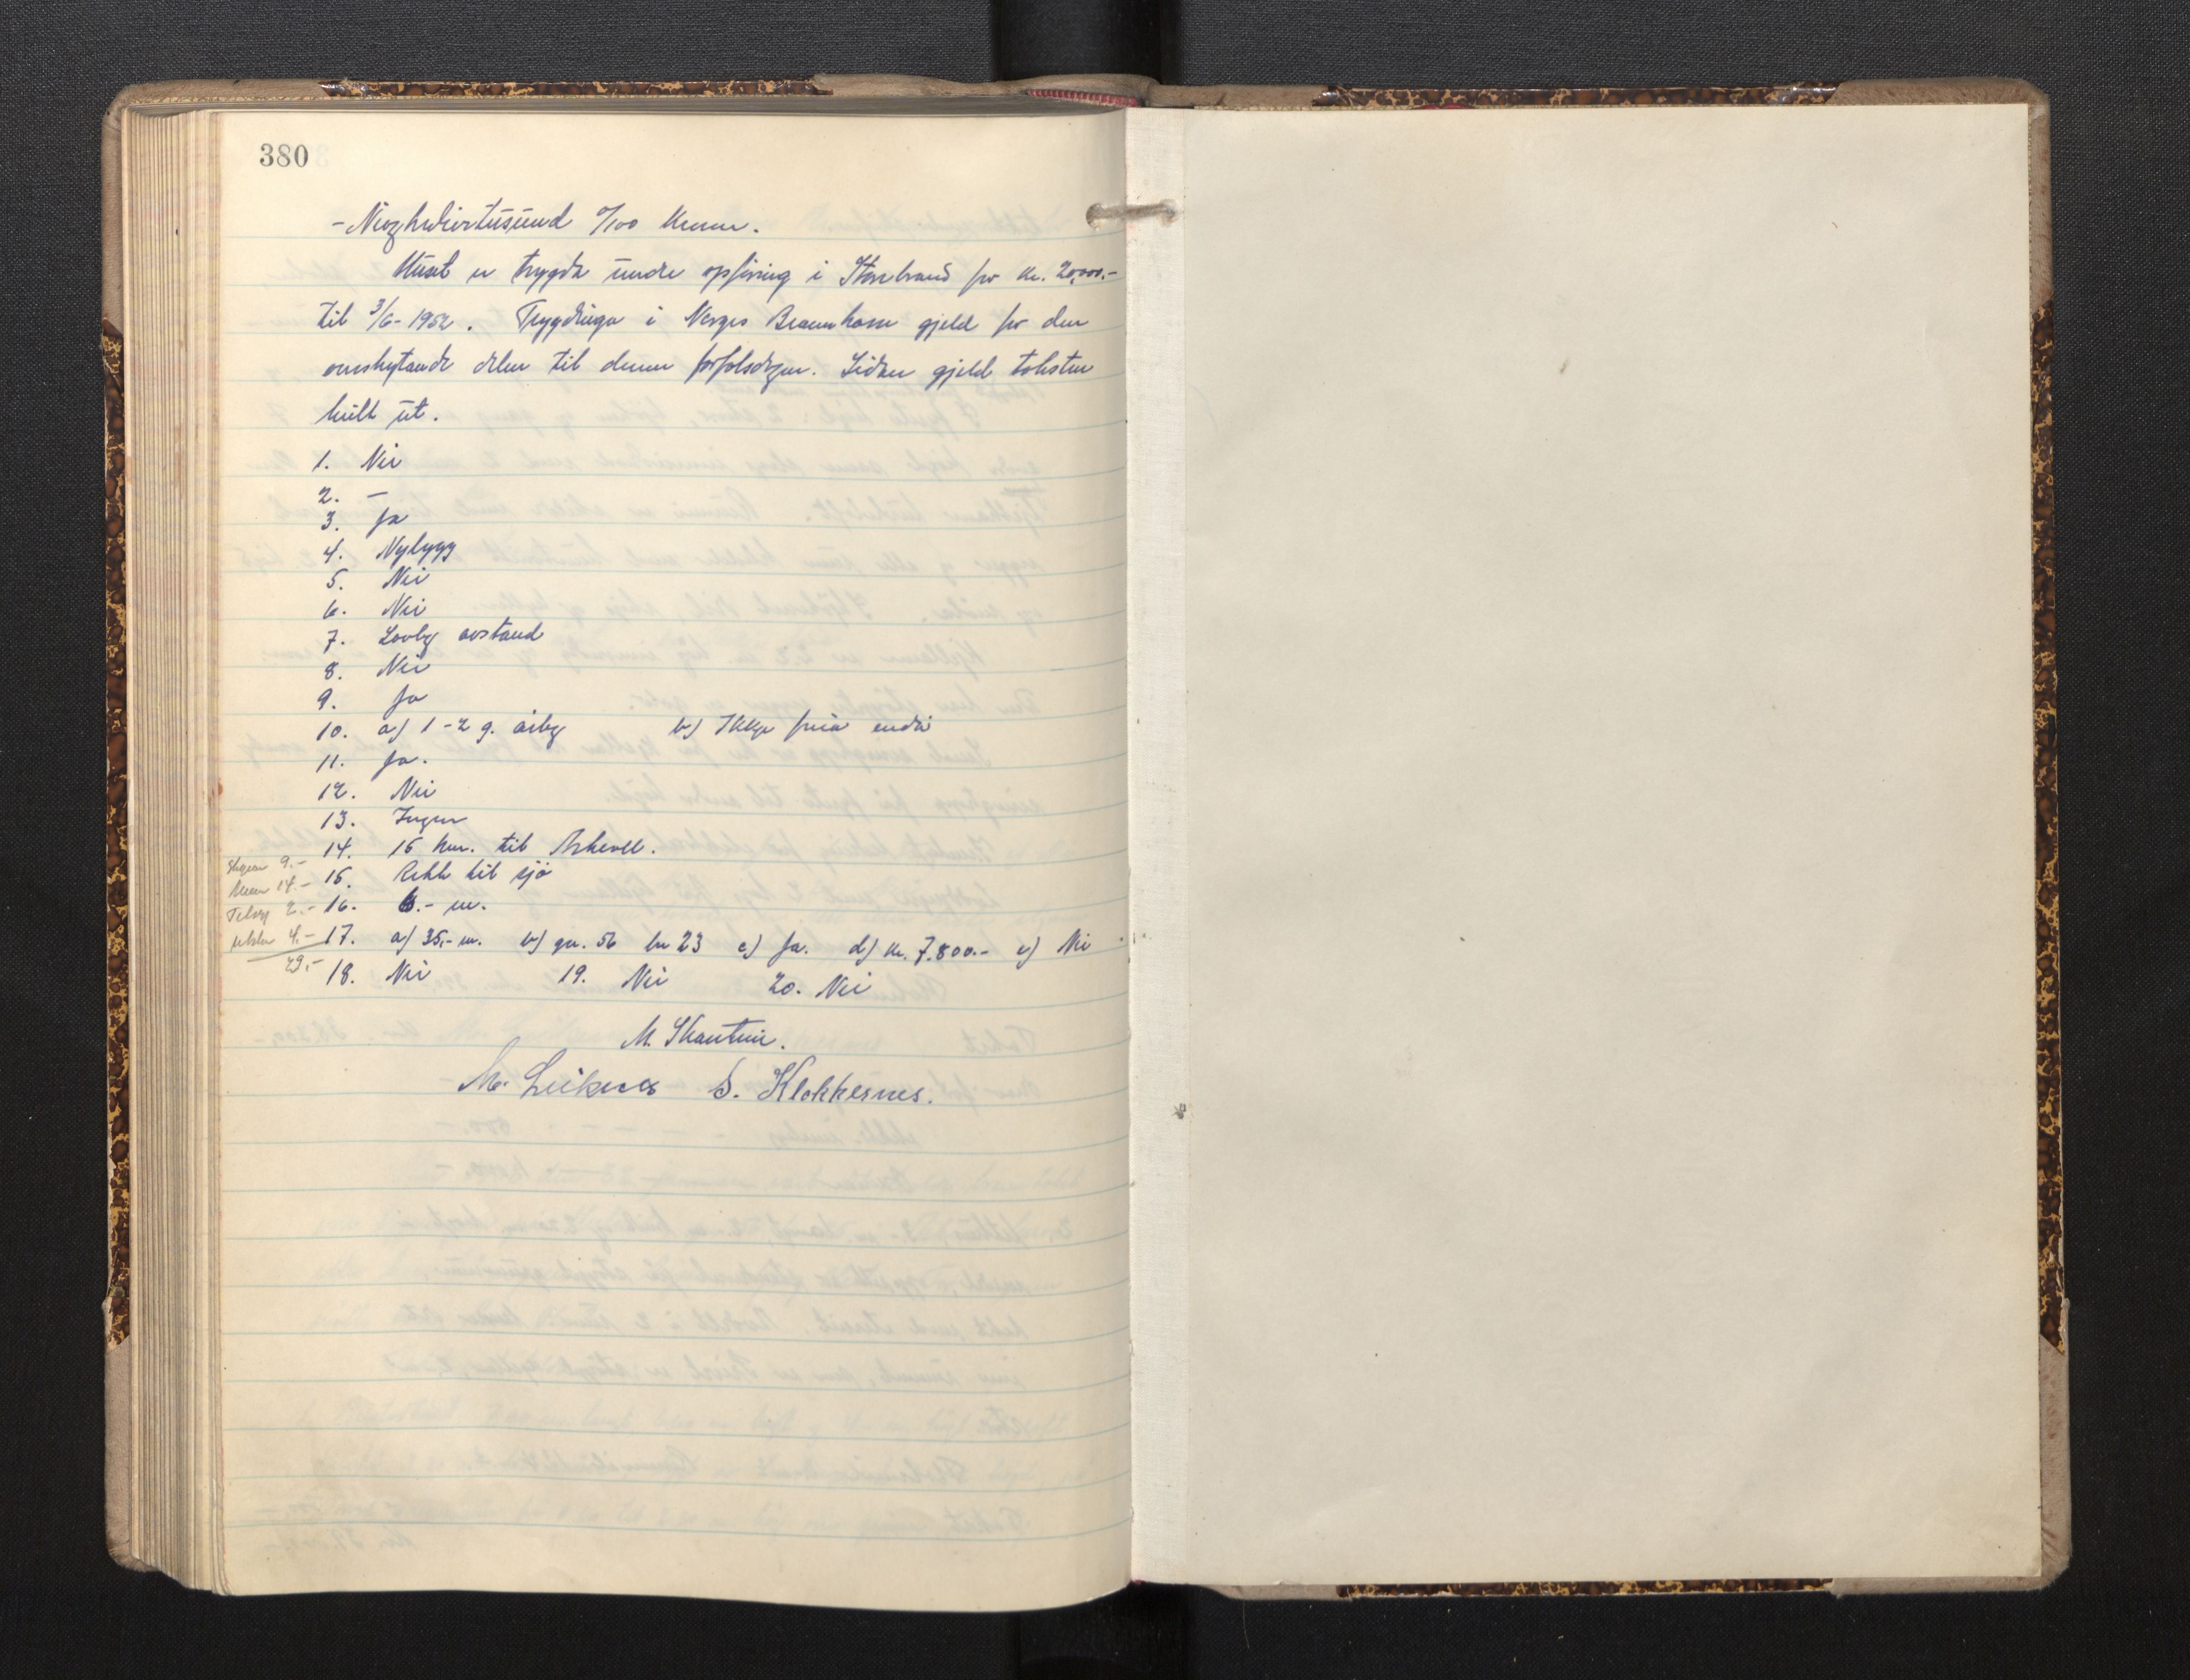 380
- Niogtredivetusund 0/100 kroner.
Huset er trygda under oppføring i Storebrand for kr. 20.000.-
til 3/6-1952. Trygdinga i Norges Brannkasse gjeld for den
overskytande delen til denne forfalsdagen. Sidan gjeld taksten
heilt ut.
1. Nei
2. -
3. Ja
4. Nybygg
5. Nei
6. Nei
7. Lovleg avstand
8. Nei
9. Ja
10. a) 1-2 g. årleg b) Ikkje feia enda
11. Ja.
12. Nei
13. Ingen
14. 15 km. til Askvoll.
15. Rekk til sjø
16. 6.- m.
17. a) 35,- m. b) gn. 56 bn 23 c) Ja. d) kr. 7.800.- e) Nei
18. Nei 19. Nei 20. Nei
9.-
14.-
2.-
4.-
29,-
M. Skantun.
M. S. Klokkernes.